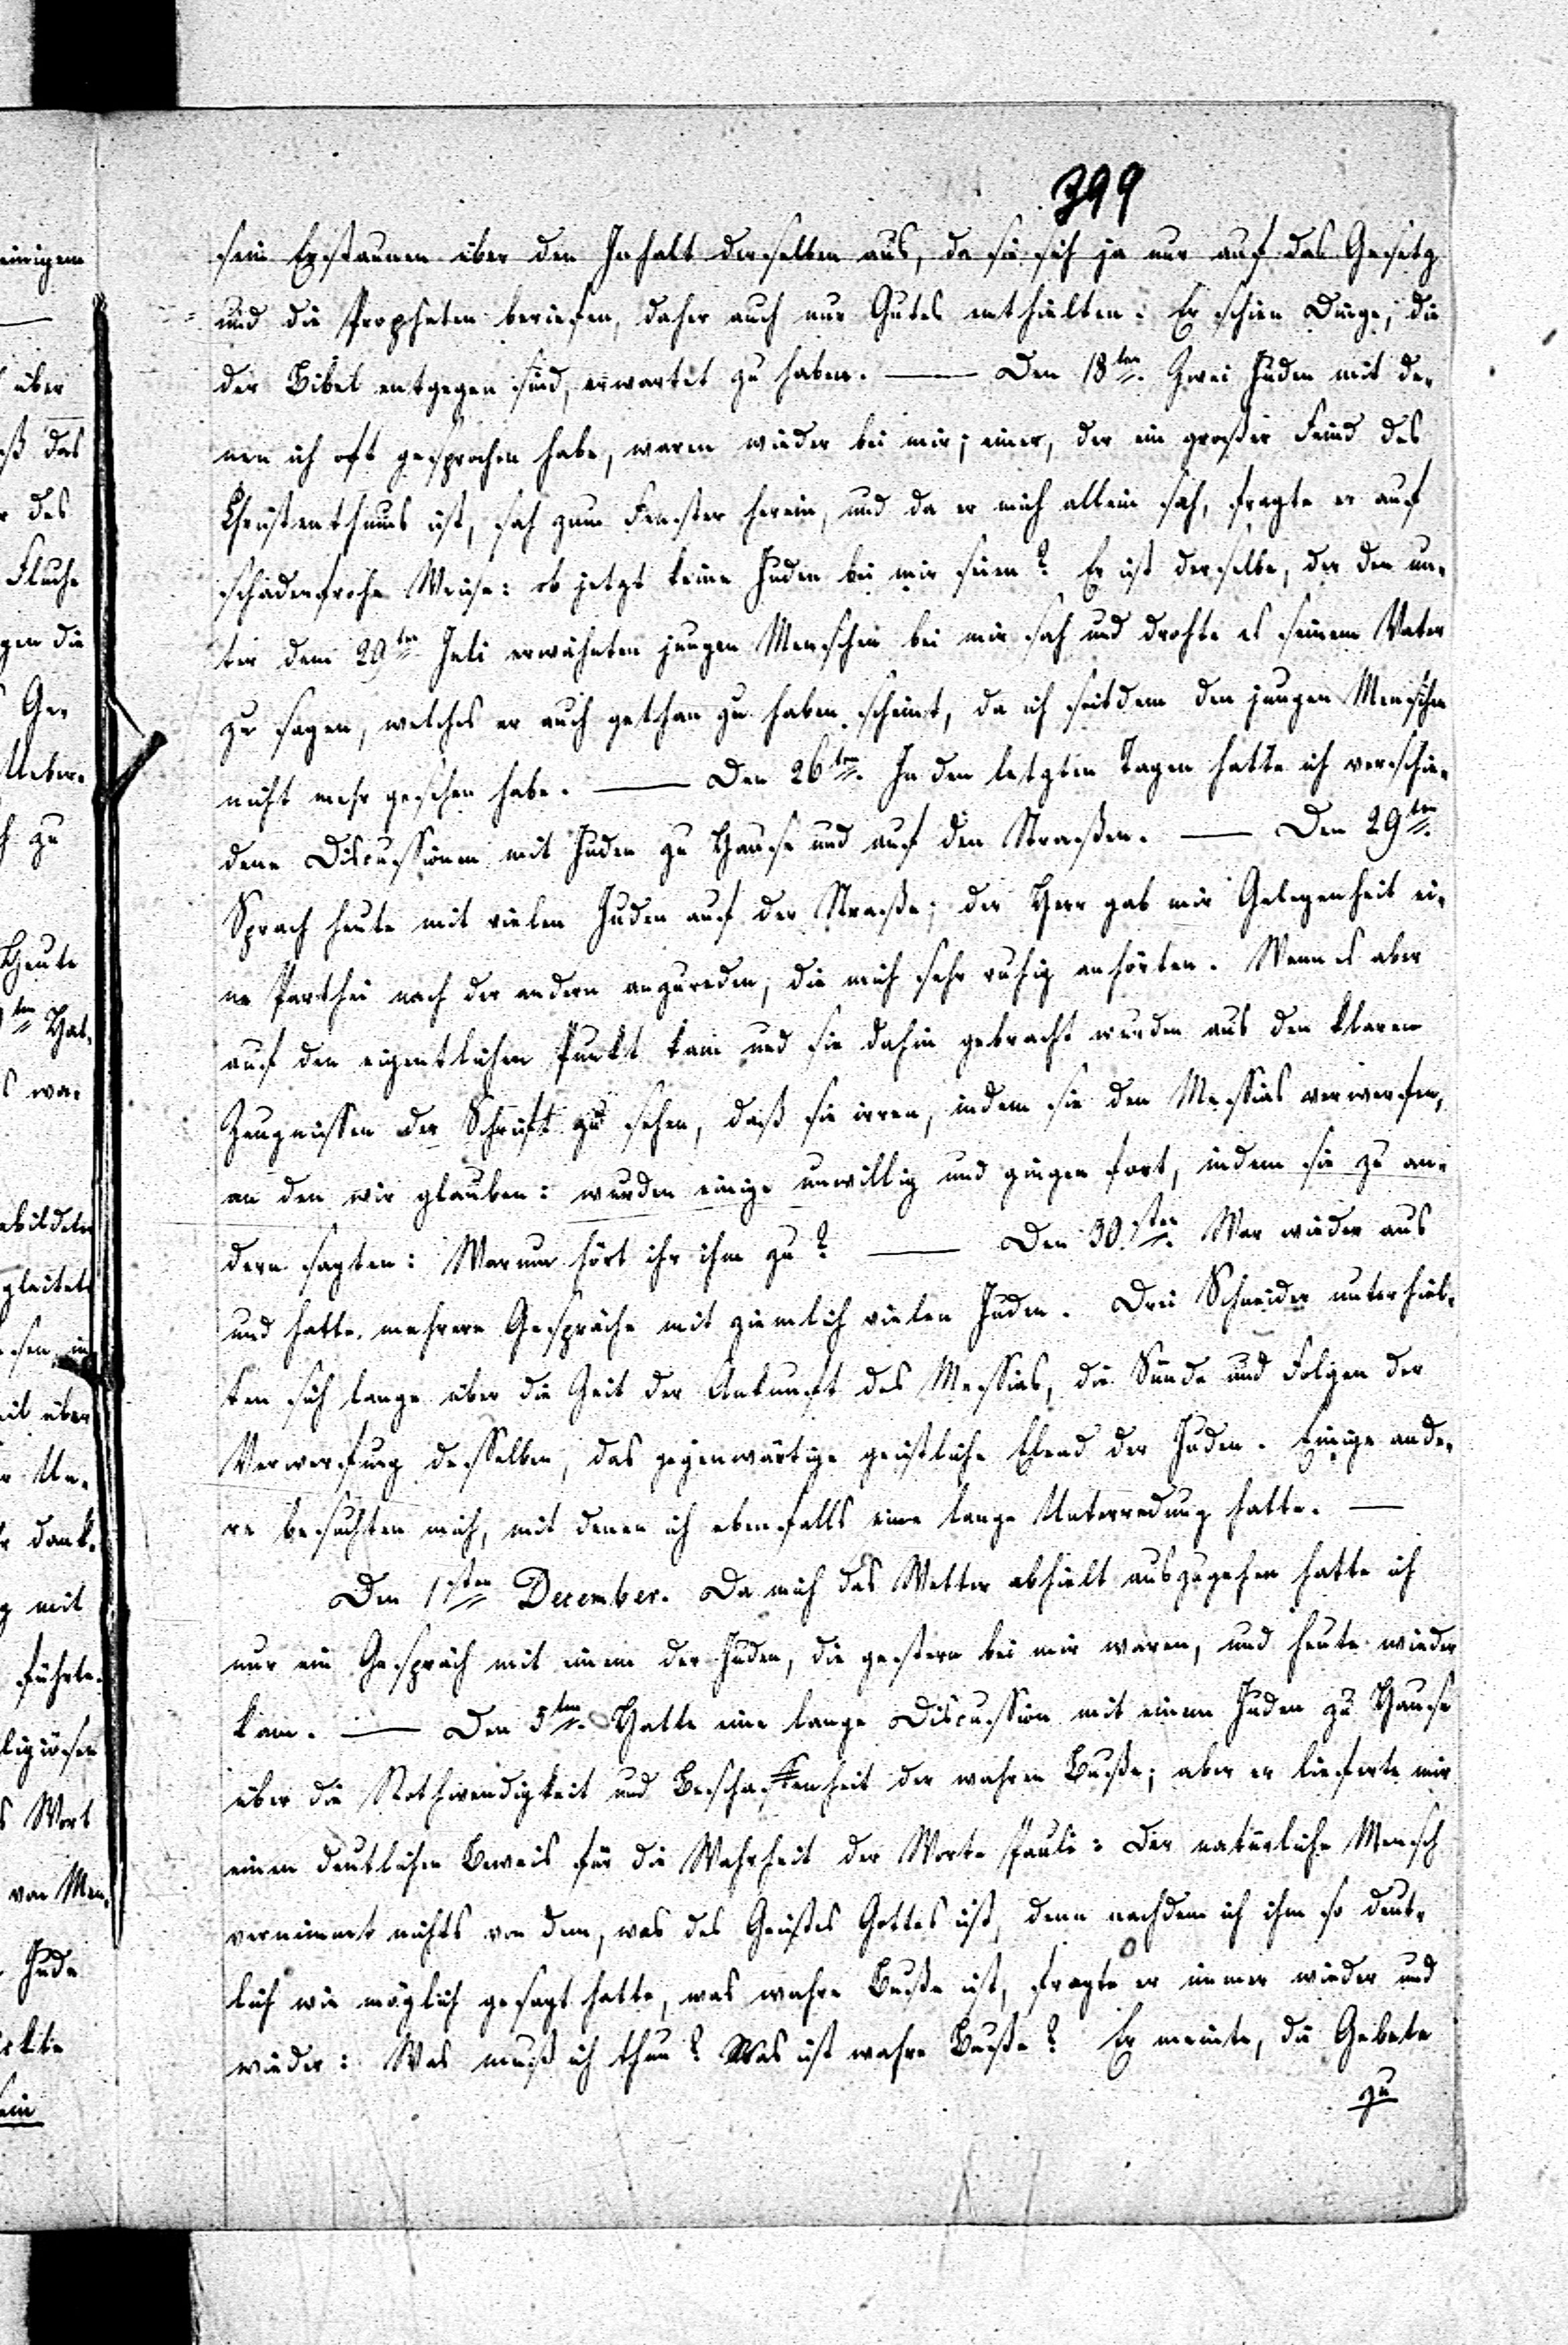 399
sein Erstaunen über den Inhalt derselben aus, da sie sich ja nur auf das Gesetz
und die Propheten beriefen, daher auch nur Gutes enthielten: Er schien Dinge, die
der Bibel entgegen sind, erwartet zu haben. — Den 18ten. Zwei Juden mit de-
nen ich oft gesprochen habe, waren wieder bei mir; einer, der ein großer Feind des
Christenthums ist, sah zum Fenster herein, und da er mich allein sah, fragte er auf
schadenfrohe Weise: ob jetzt keine Juden bei mir seien? Er ist derselbe, der den un-
ter dem 29ten Juli erwähnten jungen Menschen bei mir sah und drohte es seinem Vater
zu sagen, welches er auch gethan zu haben scheint, da ich seitdem den jungen Menschen
nicht mehr gesehen habe. — Den 26ten. In den letzten Tagen hatte ich verschie-
dene Discussionen mit Juden zu Hause und auf den Straßen. — Den 29ten.
Sprach heute mit vielen Juden auf der Straße; der Herr gab mir Gelegenheit ei-
ne Parthei nach der andern anzureden, die mich sehr ruhig anhörten. Wenn es aber
auf den eigentlichen Punkt kam und sie dahin gebracht wurden aus den klaren
Zeugnissen der Schrift zu sehen, daß sie irren, indem sie den Messias verwerfen,
an den wir glauben: wurden einige unwillig und gingen fort, indem sie zu an-
dern sagten: Warum hört ihr ihm zu? — Den 30sten. War wieder aus
und hatte mehrere Gespräche mit ziemlich vielen Juden. Drei Schneider unterhiel-
ten sich lange über die Zeit der Ankunft des Messias, die Sünde und Folgen der
Verwerfung desselben, das gegenwärtige geistliche Elend der Juden. Einige ande-
re besuchten mich, mit denen ich ebenfalls eine lange Unterredung hatte. —
Den 1sten December. Da mich das Wetter abhielt auszugehen hatte ich
nur ein Gespräch mit einem der Juden, die gestern bei mir waren, und heute wieder
kam. — Den 3ten. Hatte eine lange Discussion mit einem Juden zu Hause
über die Nothwendigkeit und Beschaffenheit der wahren Buße; aber er lieferte mir
einen deutlichen Beweis für die Wahrheit der Worte Pauli: Der natürliche Mensch
vernimmt nichts von dem, was des Geistes Gottes ist, denn nachdem ich ihm so deut-
lich wie möglich gesagt hatte, was wahre Buße ist, fragte er immer wieder und
wieder: Was muß ich thun? Was ist wahre Buße? Er meinte, die Gebete
zu